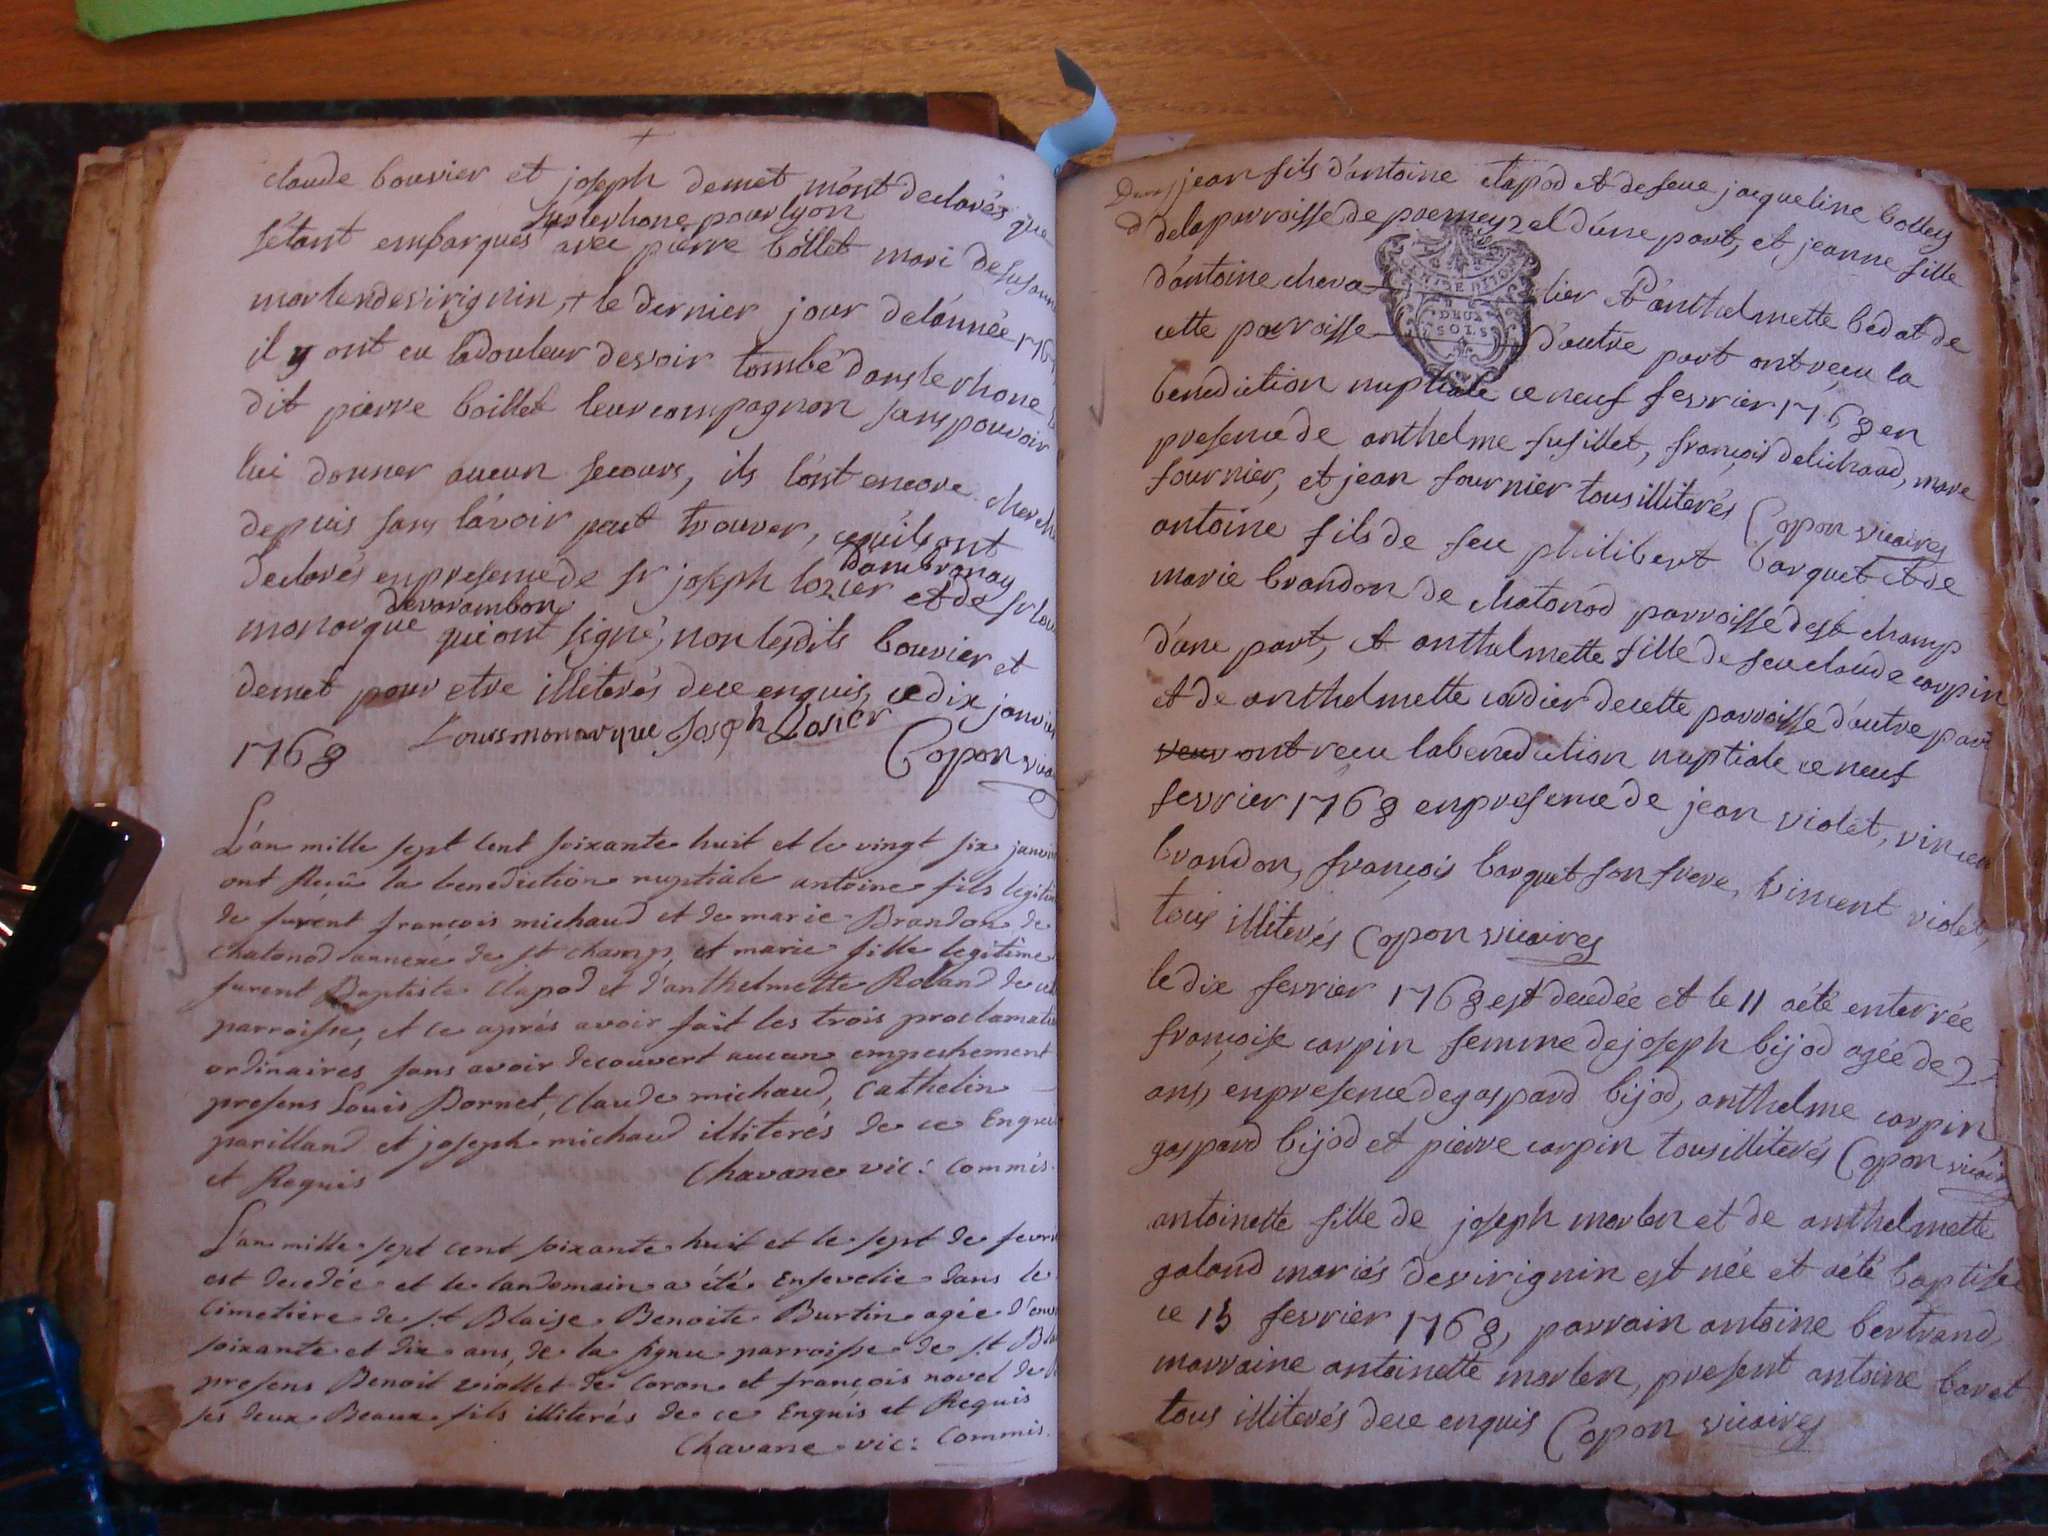 claude bouvier et joseph demet m'ont declarés que
s'etant embarqués sur le rhone pour lyon avec pierre bollet mari de susanne
marlen de virignin, + le dernier jour de l'année 1767
il y ont eu la douleur de voir tombé dans le rhone le
dit pierre boillet leur compagnon sans pouvoir
lui donner aucun secours, ils l'ont encore cherché
depuis sans l'avoir peut trouver, ce qu'ils ont
declarés en presence de sr joseph lozier d'ambronay et de sr louis
monarque de varambon qui ont signé, non lesdits bouvier et
demet pour etre illiterés de ce enquis, ce dix janvier
1768 Louis monarque Joseph Losier
Copon vicaire
L'an mille sept cent soixante huit et le vingt six janvier
ont Reçu la benediction nuptiale antoine fils legitime
de furent françois michaud et de marie Brandon de
Chatonod annexe de st champ, et marie fille legitime
furent Baptiste Clapod et d'anthelmette Roland de cette
parroisse, et ce aprés avoir fait les trois proclamations
ordinaires sans avoir decouvert aucun empechement
presens Louis Bornet, Claude michaud, Cathelin
parilland et joseph michaud illiterés de ce Enquis
et Requis Chavane vic: Commis.
L'an mille sept cent soixante huit et le sept de fevrier
est decedée et le landemain a été Ensevelie dans le
Cimetiere de st Blaise Benoite Burtin agée d'environ
soixante et dix ans, de la parroisse de st Blaise
presens Benoit viollet de Coron et françois novel de
ses deux Beaux fils illiterés de ce Enquis et Requis
Chavane vic: Commis.
jean fils d'antoine clapod et de feue jacqueline bolley
de la parroisse de d'une part, et jeanne fille
d'antoine chevalier et d'anthelmette bedat de
cette parroisse d'autre part ont reçu la
DEUX
SOLS
benediction nuptiale ce neuf fevrier 1768 en
presence de anthelme fusillet, françois delichaud, marc
fournier, et jean fournier tous illiterés Copon vicaires
antoine fils de feu philibert barquet et de
marie brandon de chatonod parroisse de st champ
d'une part, et anthelmette fille de feu claude carpin
et de anthelmette cordier de cette parroisse d'autre part
ont reçu la benediction nuptiale ce neuf
fevrier 1768 en presence de jean violet, vincen
brandon, françois barquet son frere, vincent violet,
tous illiterés Copon vicaires
le dix fevrier 1768 est decedée et le 11 a été enterrée
françoise carpin femme de joseph bijod agée de
ans, en presence de gaspard bijod, anthelme carpin
gaspard bijod et pierre carpin tous illiterés Copon vicaire
antoinette fille de joseph marlen et de anthelmette
galand mariés de virignin est née et a été baptisée
ce 15 fevrier 1768, parrain antoine bertrand,
marraine antoinette marlen, present antoine baret
tous illiterés de ce enquis Copon vicaires